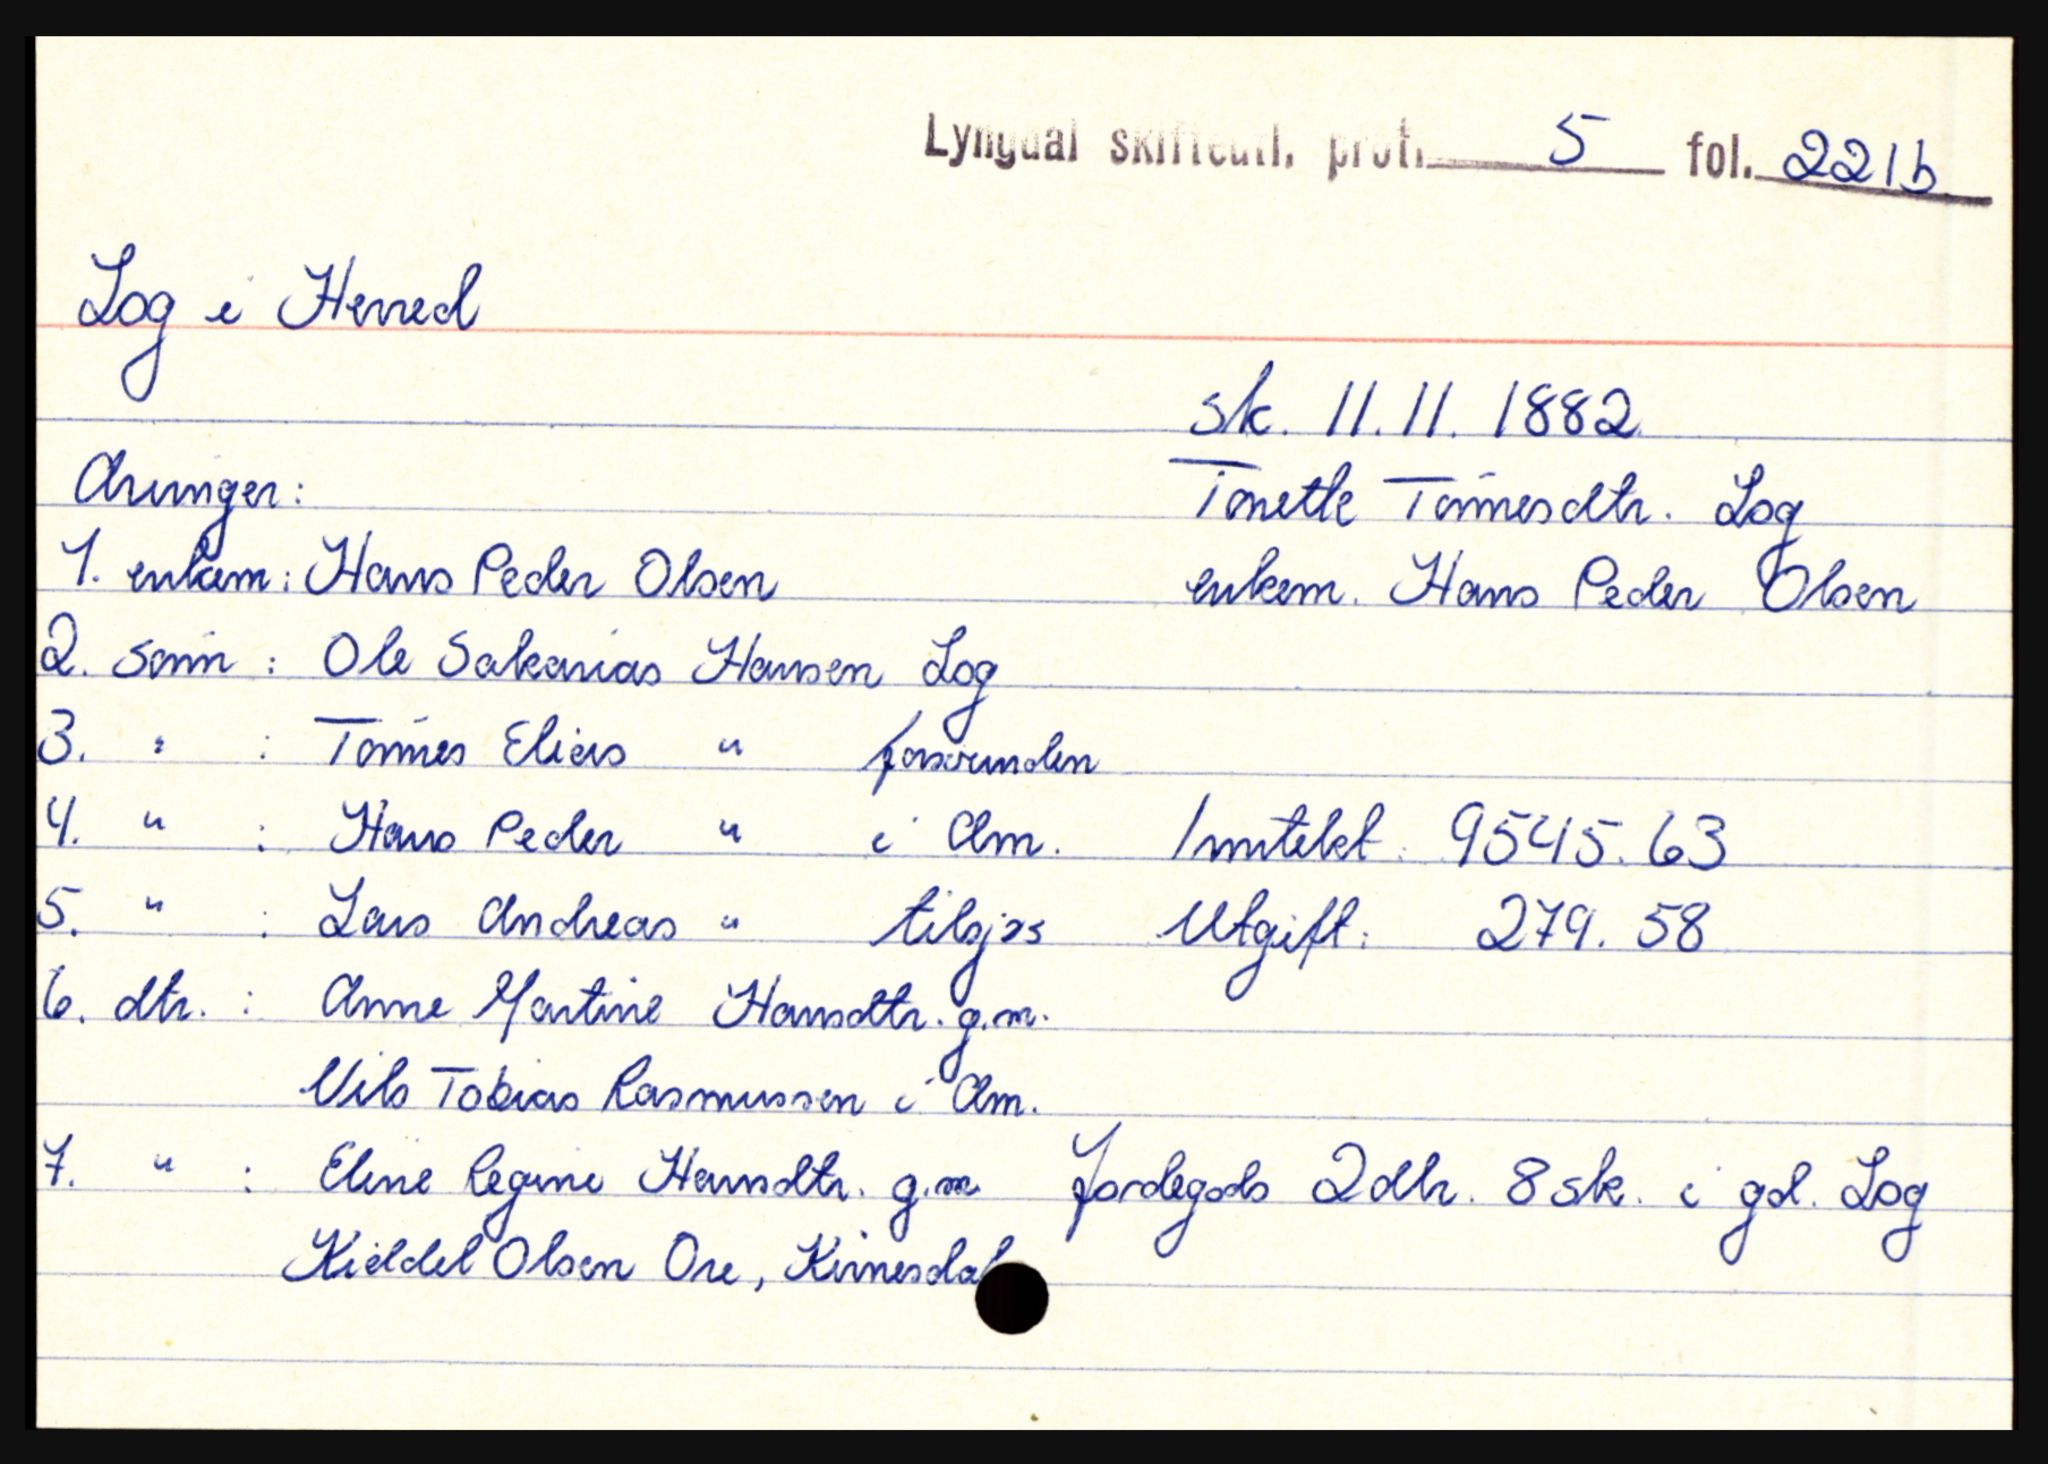 Lyngdal skifteutl. prot. 5 fol. 221b
Log i Herred
sk. 11.11.1882
Arvinger:
Tonette Tønnesdtr. Log
1. enkem: Hans Peder Olsen
enkem. Hans Peder Olsen
2. sønn : Ole Sakarias Hansen Log
3. " : Tønnes Elias " forsvunden
4. " : Hans Peder " i Am.
Inntekt: 9545.63
5. " : Lars Andreas " tilsjøs
Utgift: 279.58
6. dtr. : Anne Martine Hansdtr. g.m.
Nils Tobias Rasmussen i Am.
7. " : Eline Regine Hansdtr. g.m
Jordegods 2dlr. 8sk. i gd. Log
Kieldel Olsen Ore, Kvinesdal